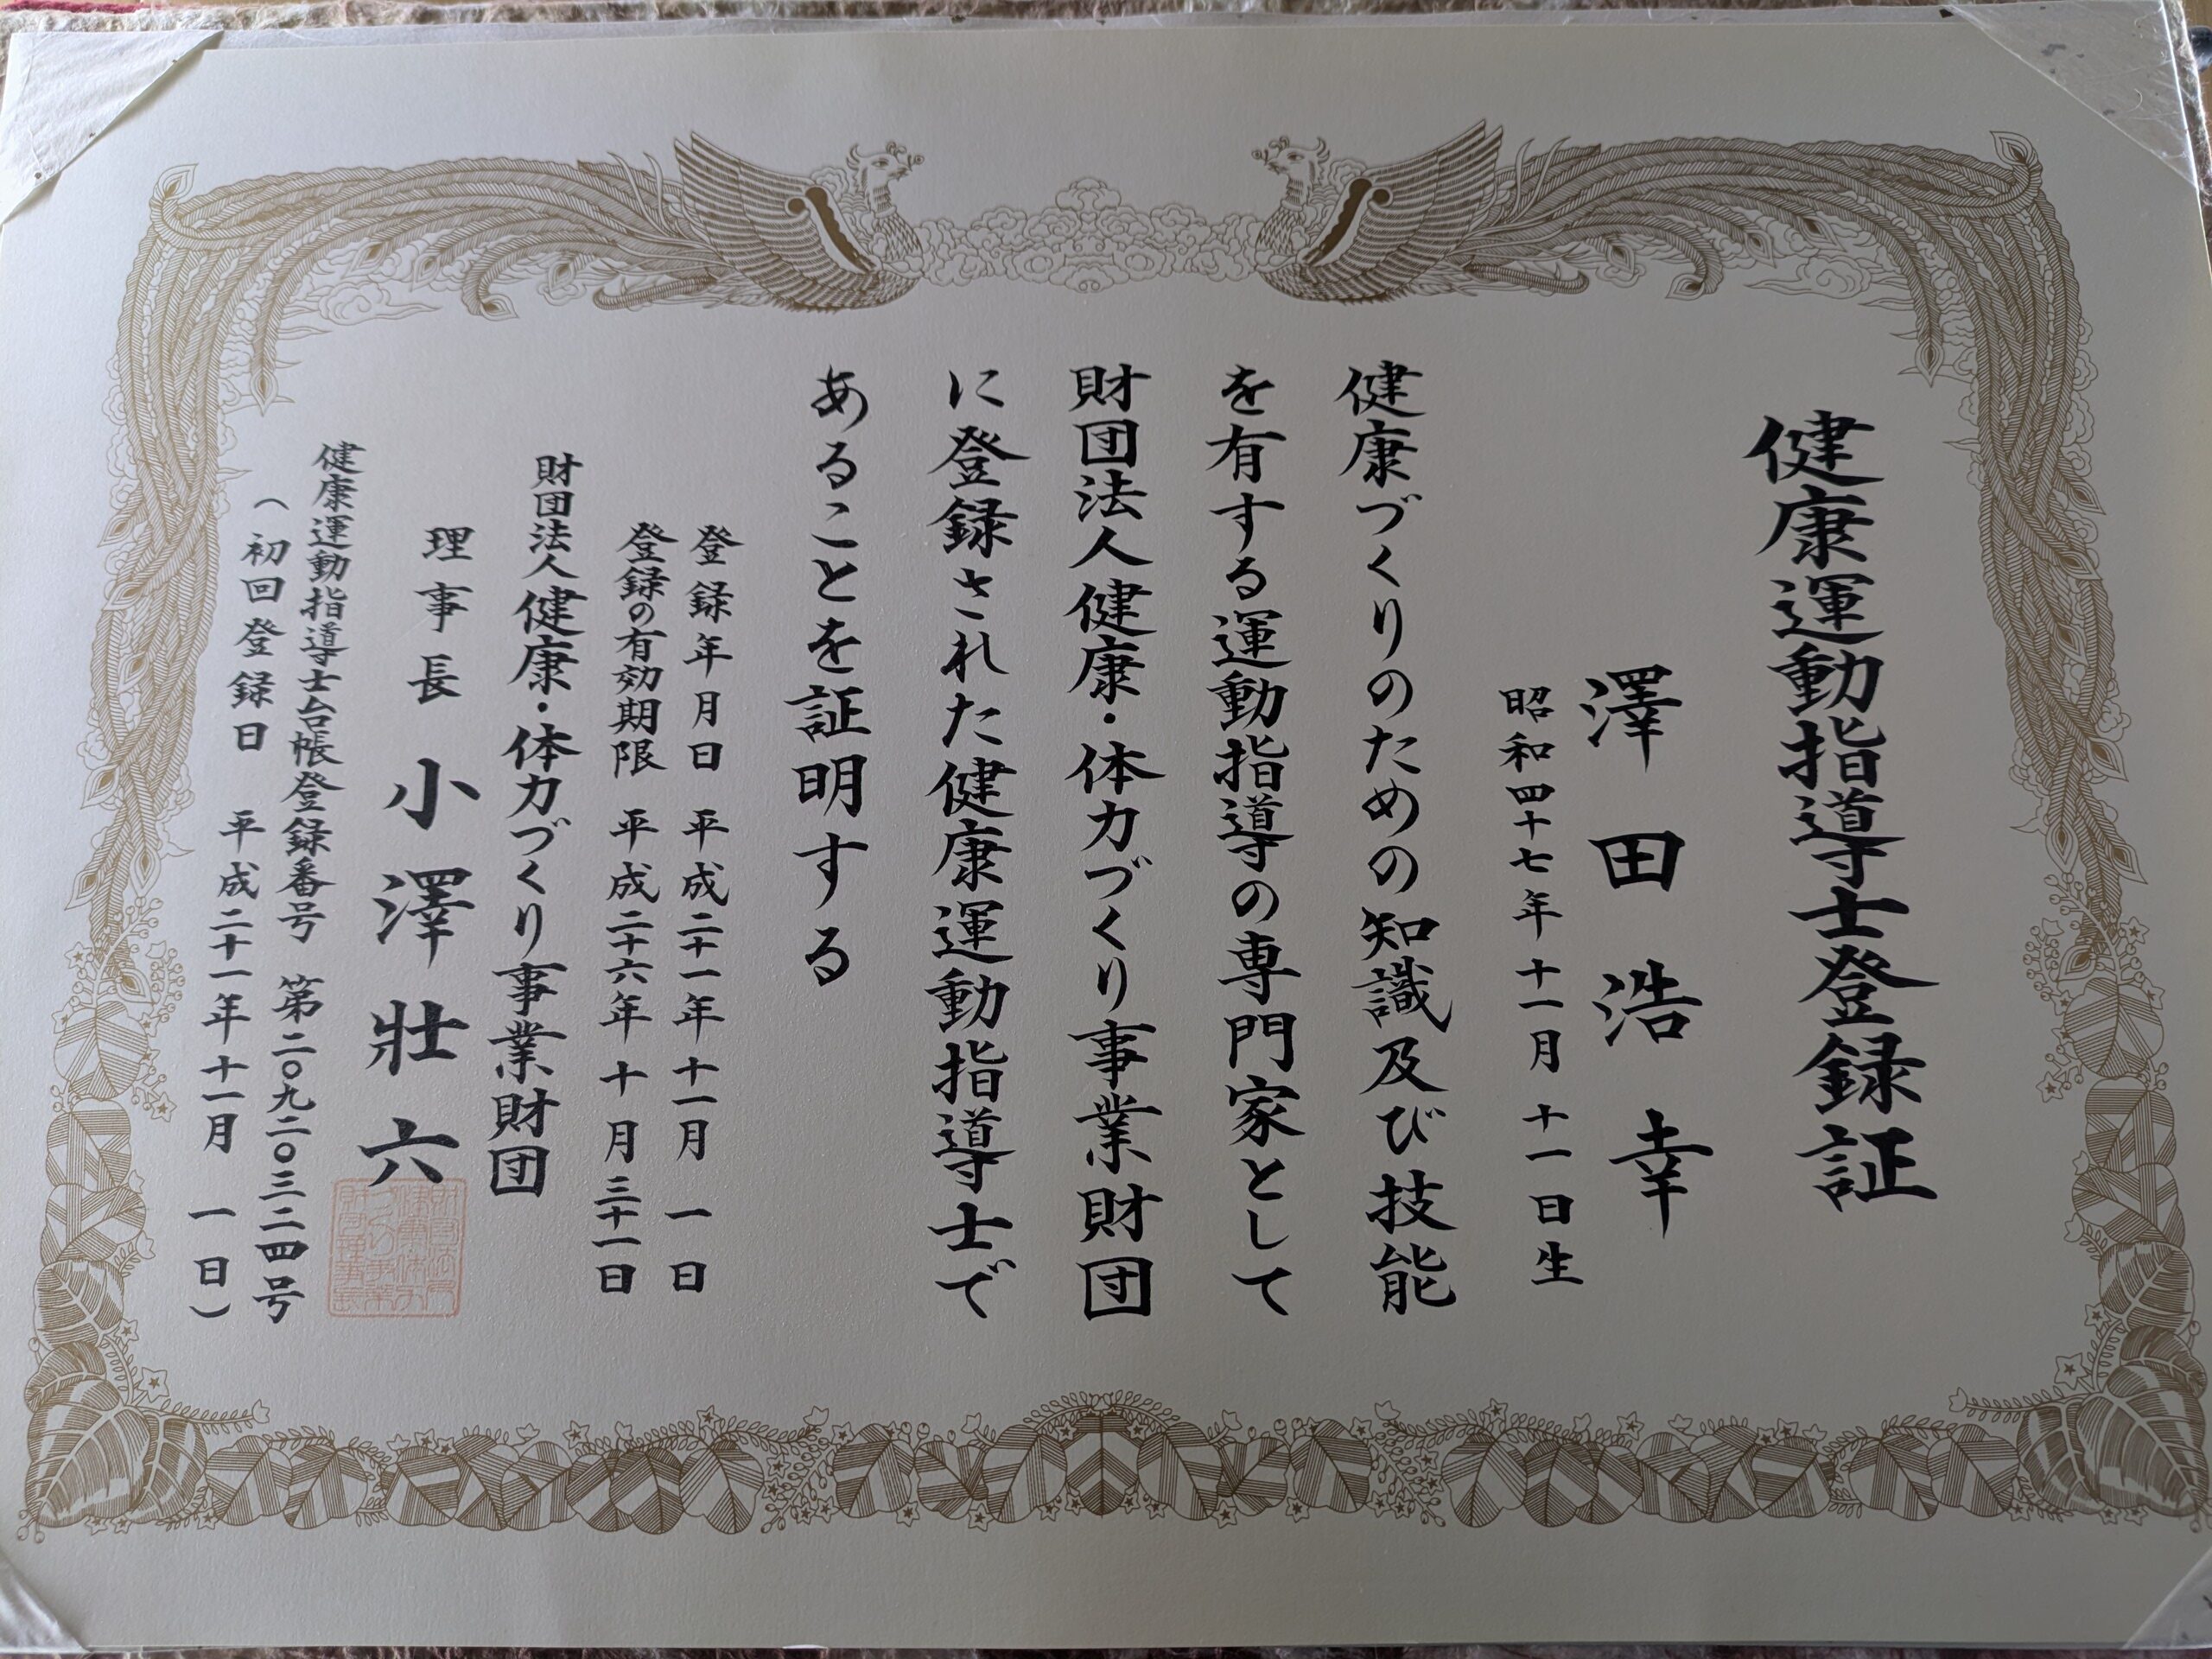 健康運動指導士登録証
澤田浩幸
昭和四十七年十一月十一日生
健康づくりのための知識及び技能
を有する運動指導の専門家として
財団法人健康・体力づくり事業財団
に登録された健康運動指導士で
あることを証明する
登録年月日 平成二十一年十一月一日
登録の有効期限 平成二十六年十月三十一日
財団法人健康・体力づくり事業財団
理事長 小澤壯六
健康運動指導士台帳登録番号 第二〇九二〇三二四号
（初回登録日 平成二十一年十一月一日）